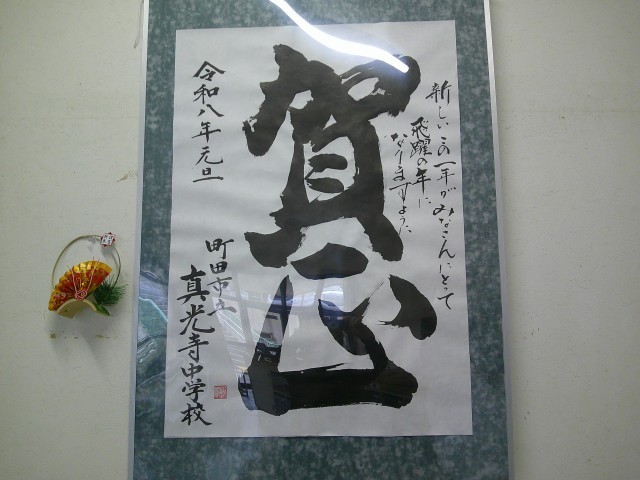 賀正
新しいこの一年がみなさんにとって
飛躍の年に
なりますように
令和八年元旦
町田市立
真光寺中学校